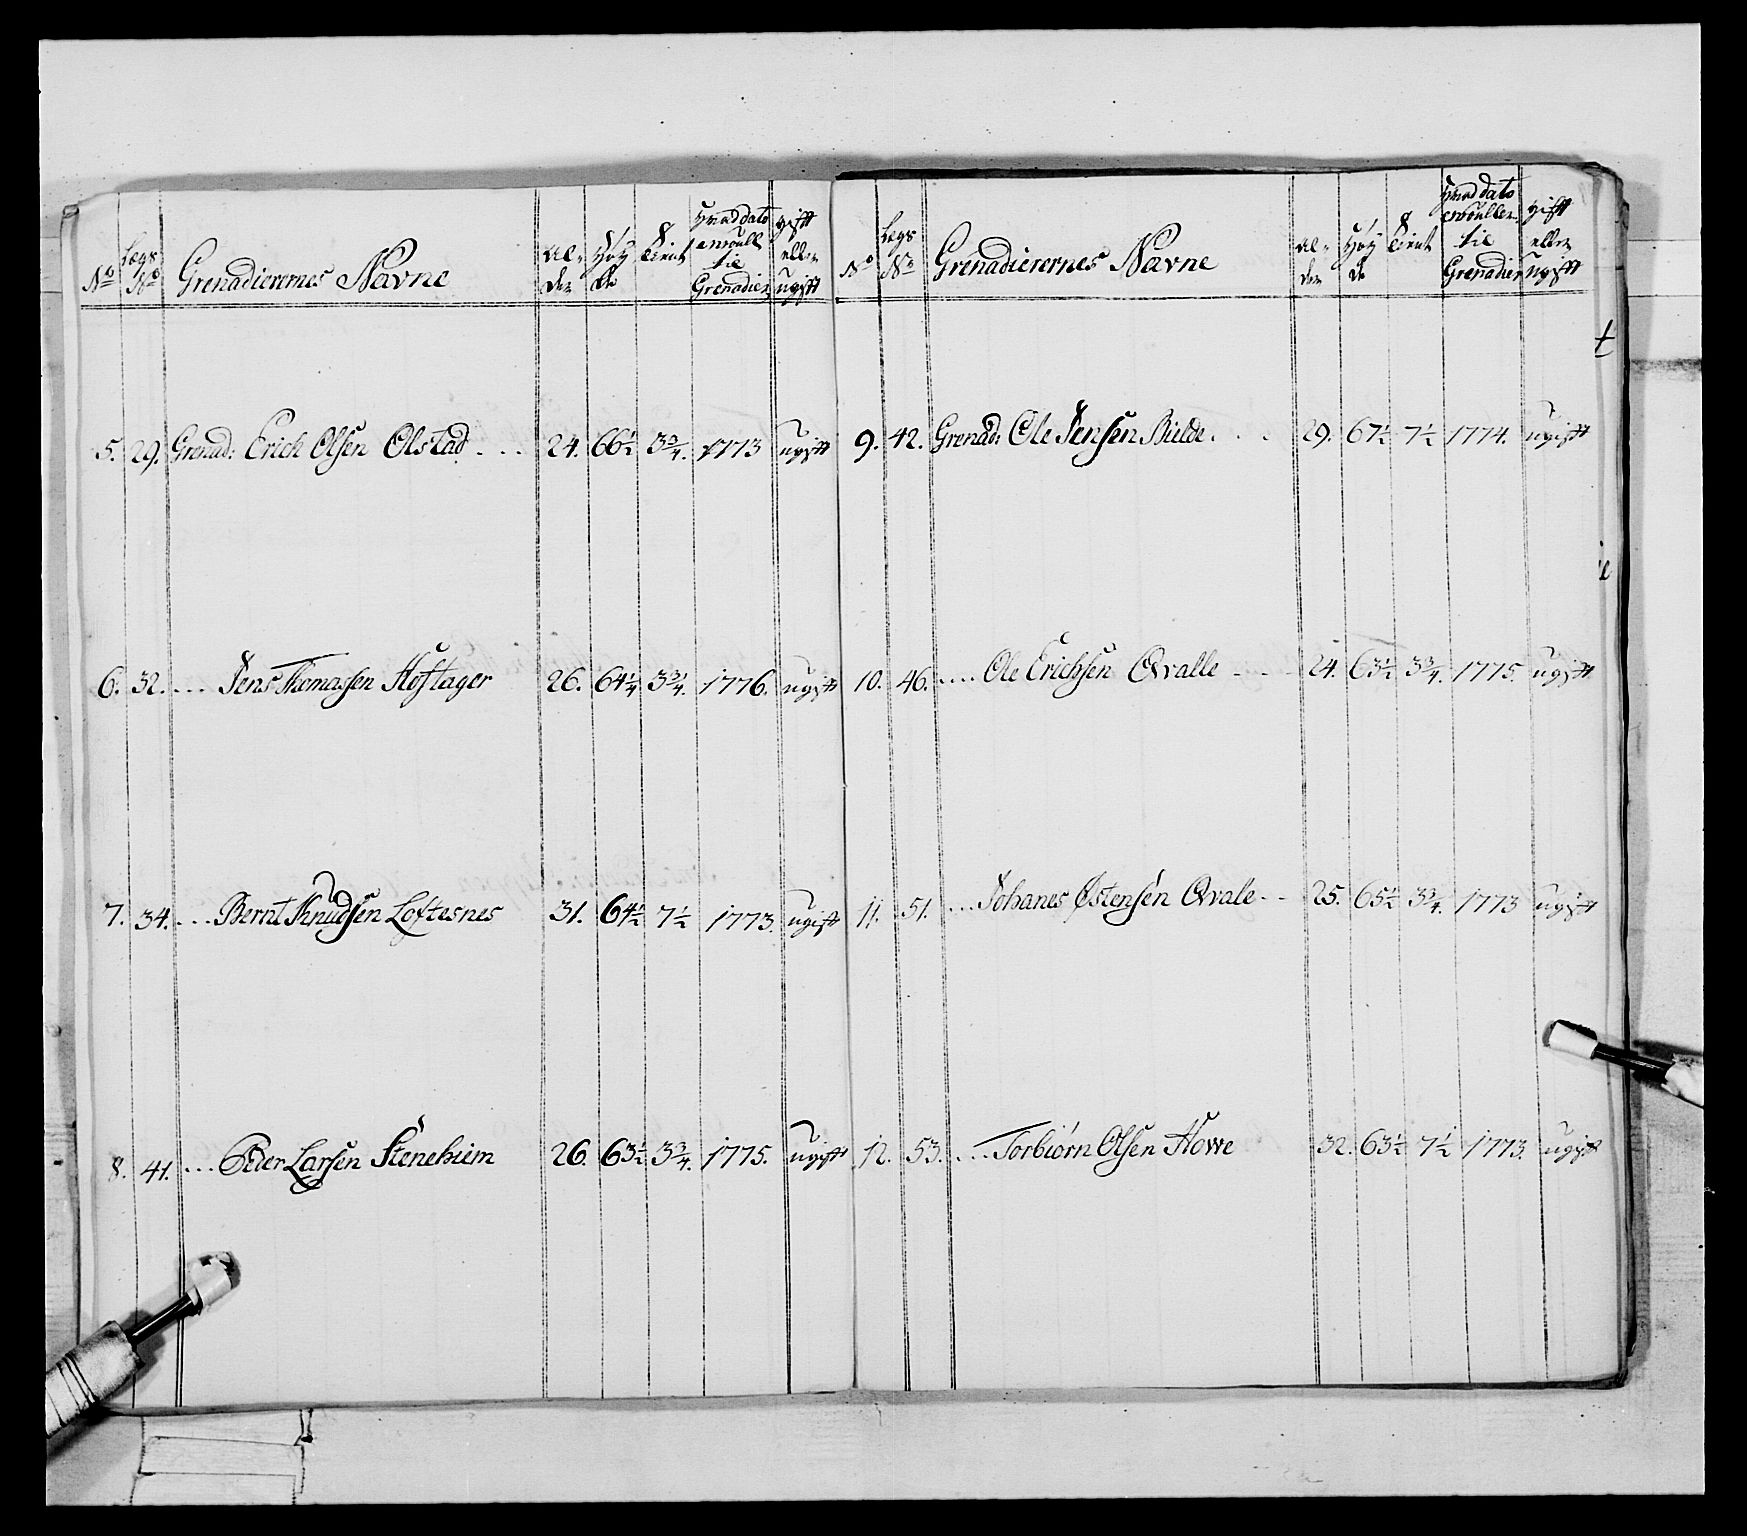 No Lægs No Grenadierernes Navne Alder Høyde Tient Hvad dato enroull til Grenadier gift eller ugift
5. 29. Grenad: Erich Olsen Olstad . . . 24. 66½ 3¾. 1773 ugift
6. 32. ... Jens Thomassen Hoftager 26. 64¼ 3¾. 1776. ugift
7. 34. ... Bernt Knudsen Loftesnes 31. 64½ 7½ 1773. ugift
8. 41. ... Peder Larsen Stenehiem 26. 63½ 3¾. 1775. ugift
No Lægs No Grenadierernes Navne Alder Høyde Tient Hvad dato enrouller til Grenadier gift eller ugift
9. 42. Grenad: Ole Jensen Bielde. . . 29. 67½ 7½ 1774. ugift
10. 46. .... Ole Erichsen Qvalle ... 24. 63½ 3¾. 1775. ugift
11. 51. ... Johanes Østensen Qvale .. 25. 65½ 3¾. 1773 ugift
12. 53. ... Torbiørn Olsen Howe 32. 63½ 7½ 1773. ugift